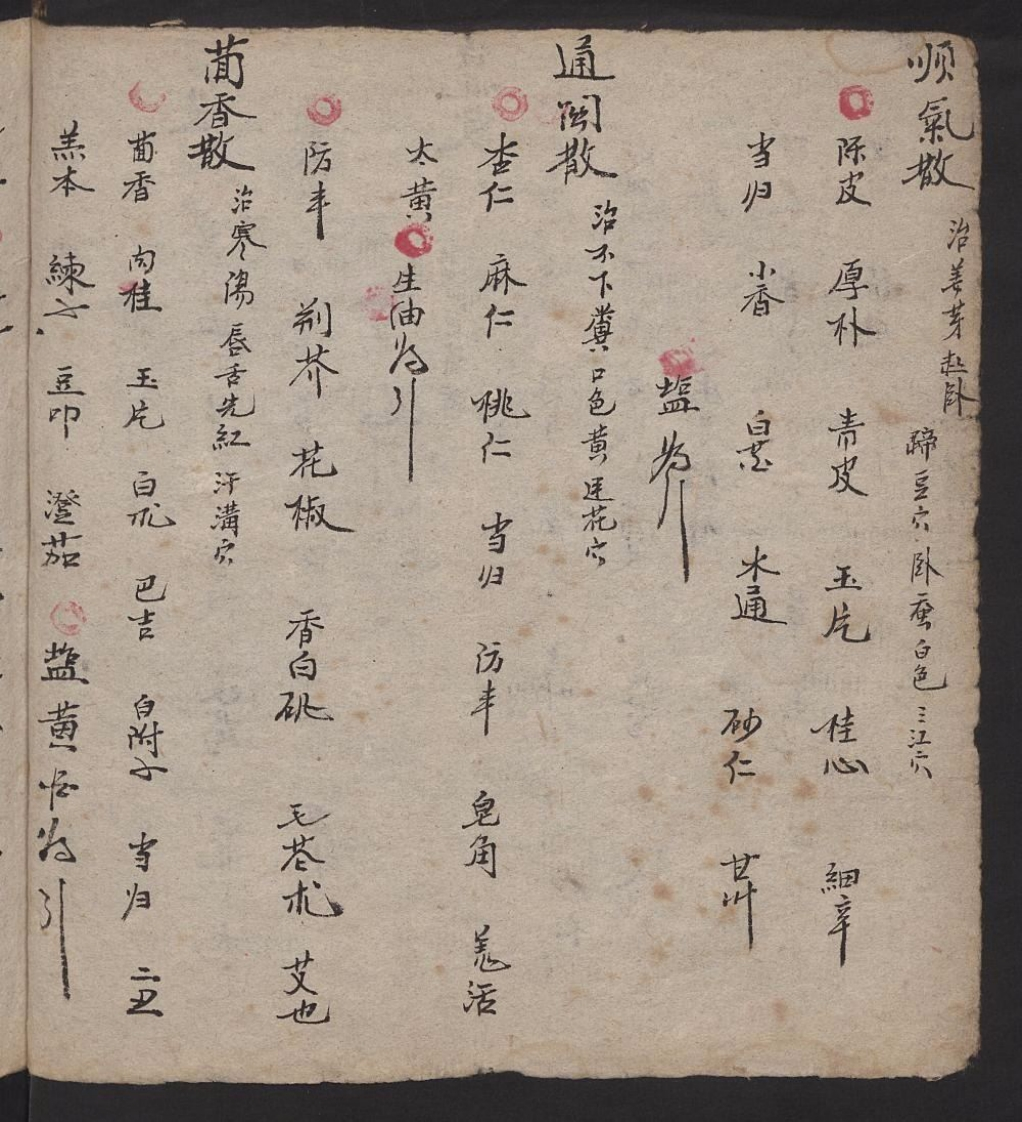 顺氣散 治姜芽起卧 蹄豆穴 卧蚕白色 三江穴
陈皮 厚朴 青皮 玉片 桂心 細辛
当归 小香 白芷 木通 砂仁 甘艸
塩为引
通関散 治不下糞 口色黄 莲花穴
杏仁 麻仁 桃仁 当归 防丰 皂角 羗活
大黄 生油为引
防丰 荆芥 花椒 香白 毛苍朮 艾也
茴香散 治寒傷 唇舌先紅 汗溝穴
茴香 肉桂 玉片 白朮 巴吉 白附子 当归 二丑
羔本 練子 豆叩 澄茄 塩黄酒为引